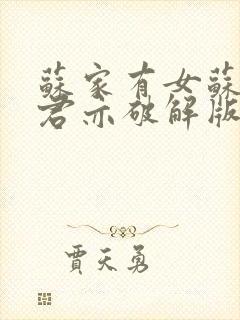 蘇家有女蘇
君亦破解版
賈天勇